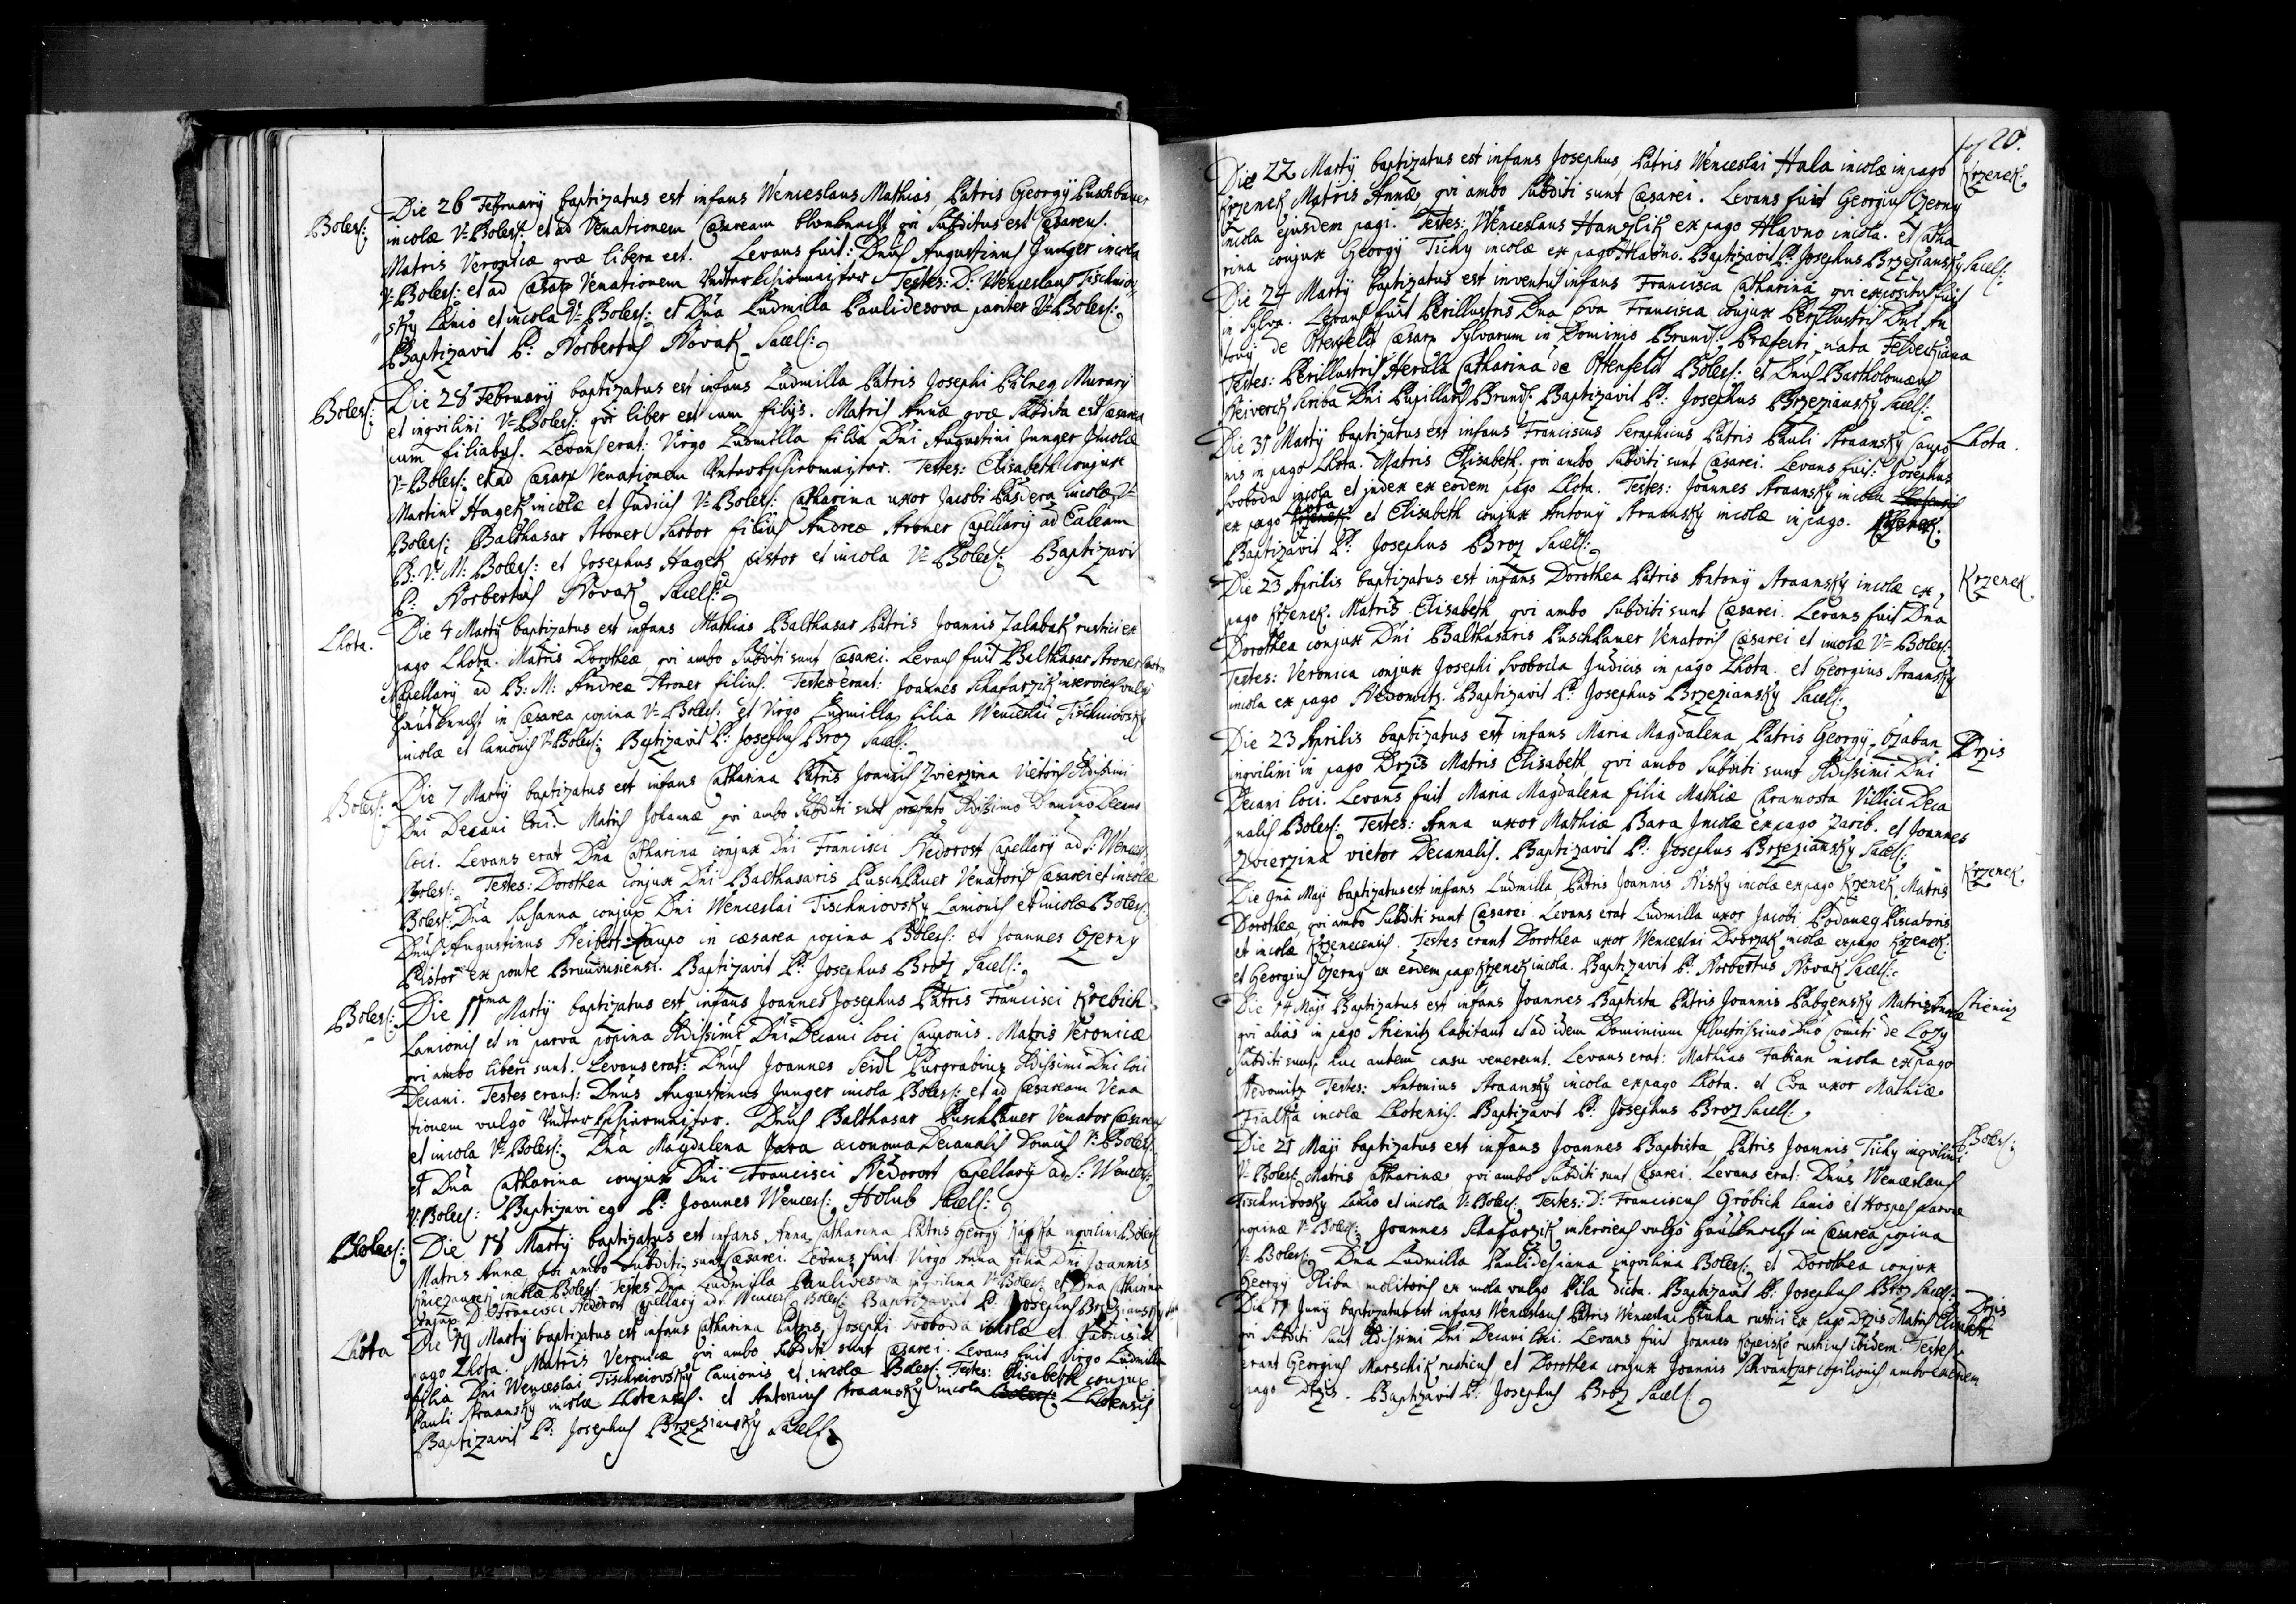 Boles:
Die 26 February baptizatus est infans Wenceslaus Mathias, Patris Georgÿ Puschbauer
incolæ V: Boles: et ad Venationem Cæsaream qvi subditus est Cæsareus.
Matris Veronicæ qvæ libera est. Levans fuit: Dnus Augustinus Junger incola
V: Boles: et ad Cæsar: Venationem Testes: D: Wenceslaus Tischniov
sky Lanio et incola V: Boles: et Dna Ludmilla Paulidesova pariter V: Boles:
Baptizavit P: Norbertus Novak Sacell:
Boles:
Die 28 February baptizatus est infans Ludmilla Patris Josephi Murarÿ
et inqvilini V: Boles: qvi liber est cum filÿs. Matris Annæ qvæ subdita est Cæsarea
cum filiabus. Levans erat: Virgo Ludmilla filia Dni Augustini Junger Incolæ
V: Boles: et ad Cæsar: Venationem Testes: Elisabeth conjux
Martini Hagek incolæ et Judicis V: Boles: Catharina uxor Jacobi incolæ V:
Boles: Balthasar Stroner Sartor filius Andreæ Stroner Capellarÿ ad
B: V: M: Boles: et Josephus Hagek pistor et incola V: Boles: Baptizavi
P: Norbertus Novak Sacell:
Lhota.
Die 4 Martÿ baptizatus est infans Mathias Balthasar Patris Joannis Zalabak rustici ex
pago Lhota. Matris Dorotheæ, qvi ambo subditi sunt Cæsarei. Levans fuit Balthasar Stroner
Capellarÿ ad B: M: Andreæ Stroner filius. Testes erant: Joannes Schafarzik inserviens vulgo
Hausknecht in Cæsarea popina V: Boles: et Virgo Ludmilla filia Wenceslai Tischniovsky
incolæ et Lanionis V: Boles: Baptizavit P: Josephus Broz Sacell:
Boles:
Die 7 Martÿ baptizatus est infans Catharina Patris Joannis Zvierzina Vietoris Adissimi
Dni Decani loci. Matris Johannæ qvi ambo subditi sunt præfato Adissimo Domino Decano
loci. Levans erat Dna Catharina conjux Dni Francisci Nedorost Capellarÿ ad S: Wences:
Boles: Testes: Dorothea conjux Dni Balthasaris Puschbauer Venatoris Cæsarei et incolæ
Boles: Dna Susanna conjux Dni Wenceslai Tischniovsky Lanionis et incolæ Boles:
Dnus Augustinus Neibert Caupo in cæsarea popina Boles: et Joannes Czerny
Pistor ex ponte Brundusiensi. Baptizavit P: Josephus Broz Sacell:
Boles:
Die 11ma Martÿ baptizatus est infans Joannes Josephus Patris Francisci Krebich
Lanionis et in parva popina Adissimi Dni Decani loci Cauponis. Matris Veronicæ
qvi ambo liberi sunt. Levans erat: Dnus Joannes Seidl Purgrabius Adissimi Dni loci
Decani. Testes erant: Dnus Augustinus Junger incola Boles: et ad Cæsaream Vena
tionem vulgo Dnus Balthasar Puschbauer Venator Cæsareus
et incola V: Boles: Dna Magdalena Jara æconoma Decanalis Domus V: Boles:
et Dna Catharina conjux Dni Francisci Nedorost Capellarÿ ad S: Wences:
V: Boles: Baptizavi ego P: Joannes Wences: Holub Sacell:
Boles:
Die 18 Martÿ baptizatus est infans Anna Catharina Patris Georgÿ Kafka inqvilini Boles:
Matris Annæ qvi ambo subditi sunt Cæsarei. Levans fuit Virgo Anna filia Dni Joannis
incolæ Boles: Testes Dna Ludmilla Paulidesova inqvilina V: Boles: et Dna Catharina
conjux D: Francisci Nedorost Capellarÿ ad S: Wences: Boles: Baptizavit P: Josephus Brzeziansky
Lhota
Die 19 Martÿ baptizatus est infans Catharina Patris Josephi Svoboda incolæ et Judicis in
pago Lhota. Matris Veronicæ qvi ambo subditi sunt Cæsarei. Levans fuit Virgo Ludmilla
filia Dni Wenceslai Tischniovsky Lanionis et incolæ Boles: Testes: Elisabeth conjux
Pauli Straansky incolæ Lhotensis. et Antonius Straansky incola Lhotensis
Baptizavit P: Josephus Brzeziansky Sacell:
20.
Krzenek:
Die 22 Martÿ baptizatus est infans Josephus, Patris Wenceslai Hala incolæ in pago
Krzenek Matris Annæ qvi ambo subditi sunt Cæsarei. Levans fuit Georgius Czerny
incola ejusdem pagi. Testes: Wenceslaus Hanzlik ex pago Hlavno incola. et Catha
rina conjux Georgÿ Tichy incolæ ex pago Hlavno. Baptizavit P: Josephus Brzeziansky Sacell:
Die 24 Martÿ baptizatus est inventus infans Francisca Catharina qvi expositus fuit
in sylva. Levans fuit Perillustris Dna Eva Francisca conjux Perillustris Dni An
tonÿ de Ottenfeld Cæsar: Sylvarum in Dominio Brund: Præfecti, nata
Testes: Perillustris Herula Catharina de Ottenfeld Boles: et Dnus Bartholomæus
Scriba Dni Brund: Baptizavit P: Josephus Brzeziansky Sacell:
Lhota.
Die 31 Martÿ baptizatus est infans Franciscus Seraphicus Patris Pauli Straansky Caupo
nis in pago Lhota. Matris Elisabeth. qvi ambo subditi sunt Cæsarei. Levans fuit: Josephus
Svoboda incola et judex ex eodem pago Lhota. Testes: Joannes Straansky incola
ex pago Lhota et Elisabeth conjux Antonÿ Straansky incolæ in pago. Krzenek.
Baptizavit P: Josephus Broz Sacell:
Krzenek.
Die 23 Aprilis baptizatus est infans Dorothea Patris Antonÿ Straansky incolæ ex
pago Krzenek. Matris Elisabeth qvi ambo subditi sunt Cæsarei. Levans fuit Dna
Dorothea conjux Dni Balthasaris Puschbauer Venatoris Cæsarei et incolæ V: Boles:
Testes: Veronica conjux Josephi Svoboda Judicis in pago Lhota. et Georgius Straansky
incola ex pago Nedomitz. Baptizavit P: Josephus Brzeziansky Sacell:
Drzis
Die 23 Aprilis baptizatus est infans Maria Magdalena Patris Georgÿ Czaban
inqvilini in pago Drzis Matris Elisabeth qvi ambo subditi sunt Adissimi Dni
Decani loci. Levans fuit Maria Magdalena filia Mathiæ Caramosta Villici Deca
nalis Boles: Testes: Anna uxor Mathiæ Bara Incolæ ex pago Zarib. et Joannes
Zvierzina vietor Decanalis. Baptizavit P: Josephus Brzeziansky Sacell:
Krzenek.
Die Maji baptizatus est infans Ludmilla Patris Joannis Nisky incolæ ex pago Krzenek. Matris
Dorotheæ, qvi ambo subditi sunt Cæsarei. Levans erat Ludmilla uxor Jacobi Piscatoris
et incolæ Krzenecensis. Testes erant Dorothea uxor Wenceslai Dvorzak incolæ ex pago Krzenek:
et Georgius Czerny ex eodem pago Krzenek incola. Baptizavit P: Norbertus Novak Sacell:
Die 14 Maji Baptizatus est infans Joannes Baptista Patris Joannis Matris Annæ
qvi alias in pago habitant et ad idem Dominium Illustrissimo Dno Comiti de Lozy
subditi sunt, huc autem casu venerunt. Levans erat: Mathias Fabian incola ex pago
Nedomitz Testes: Antonius Straansky incola ex pago Lhota. et Eva uxor Mathiæ
Fialka incolæ Lhotensis. Baptizavit P: Josephus Broz Sacell:
Boles:
Die 21 Maji baptizatus est infans Joannes Baptista Patris Joannis Tichy inqvilini
V: Boles: Matris Catharinæ qvi ambo subditi sunt Cæsarei. Levans erat: Dnus Wenceslaus
Tischniovsky Lanio et incola V: Boles: Testes: D: Franciscus Gröbich Lanio et Hospes parvæ
popinæ V: Boles: Joannes Schafarzik inserviens vulgo Hausknecht in Cæsarea popina
V: Boles: Dna Ludmilla Paulidesiana inqvilina Boles: et Dorothea conjux
Georgÿ Skiba molitoris ex mola vulgo Pila dicta. Baptizavit P: Josephus Broz Sacell:
Drzis
Die 17 Junÿ baptizatus est infans Wenceslaus Patris Wenceslai rustici ex pago Drzis Matris Elisabeth
qvi subditi sunt Adissimi Dni Decani loci. Levans fuit Joannes rusticus ibidem. Testes
erant Georgius Marschik rusticus et Dorothea conjux Joannis opilionis, ambo ex eodem
pago Drzis. Baptizavit P: Josephus Broz Sacell: